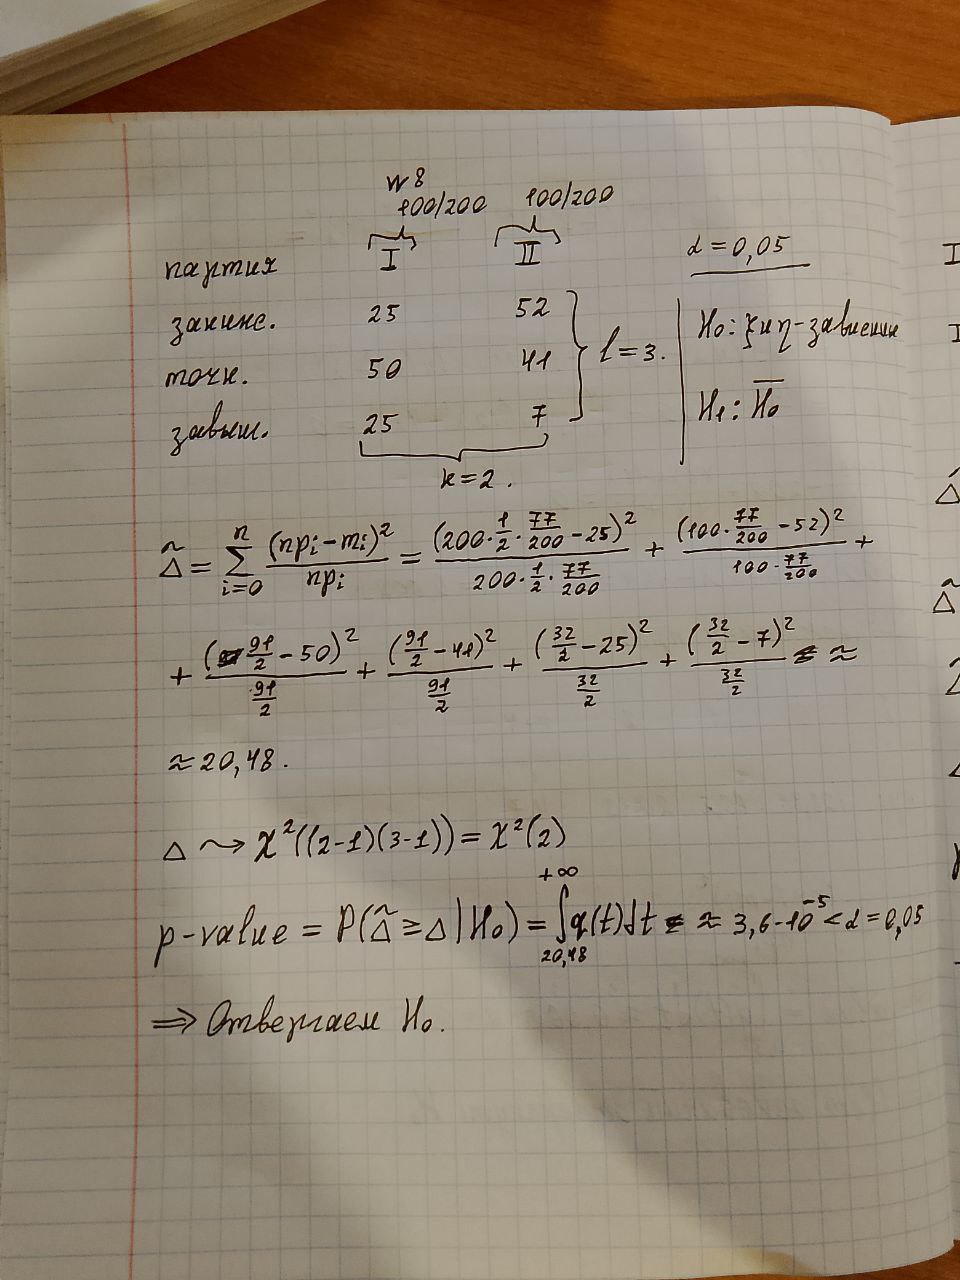 №8
100/200 100/200
партия I II α = 0,05
заниж. 25 52
точн. 50 41 l = 3.
завыш. 25 7
k = 2.
H₀: ξ и η - зависим
H₁: H̅₀
Δ̃ = Σ_{i=0}^{n} (npᵢ - mᵢ)²/npᵢ = (200·1/2·77/200 - 25)²/(200·1/2·77/200) + (100·77/200 - 52)²/(100·77/200) +
+ (91/2 - 50)²/(91/2) + (91/2 - 41)²/(91/2) + (32/2 - 25)²/(32/2) + (32/2 - 7)²/(32/2) ≈
≈ 20,48.
Δ ⤳ χ²((2-1)(3-1)) = χ²(2)
p-value = P(Δ̃ ≥ Δ | H₀) = ∫_{20,48}^{+∞} q(t)dt ≈ 3,6·10⁻⁵ < α = 0,05
⇒ Отвергаем H₀.